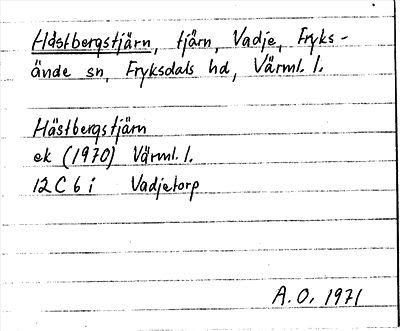 Hästbergstjärn, tjärn, Vadje, Fryks-
ände sn, Fryksdals hd, Värml. l.
Hästbergstjärn
ek (1970) Värml. l.
12 C 6 i Vadjetorp
A. O. 1971